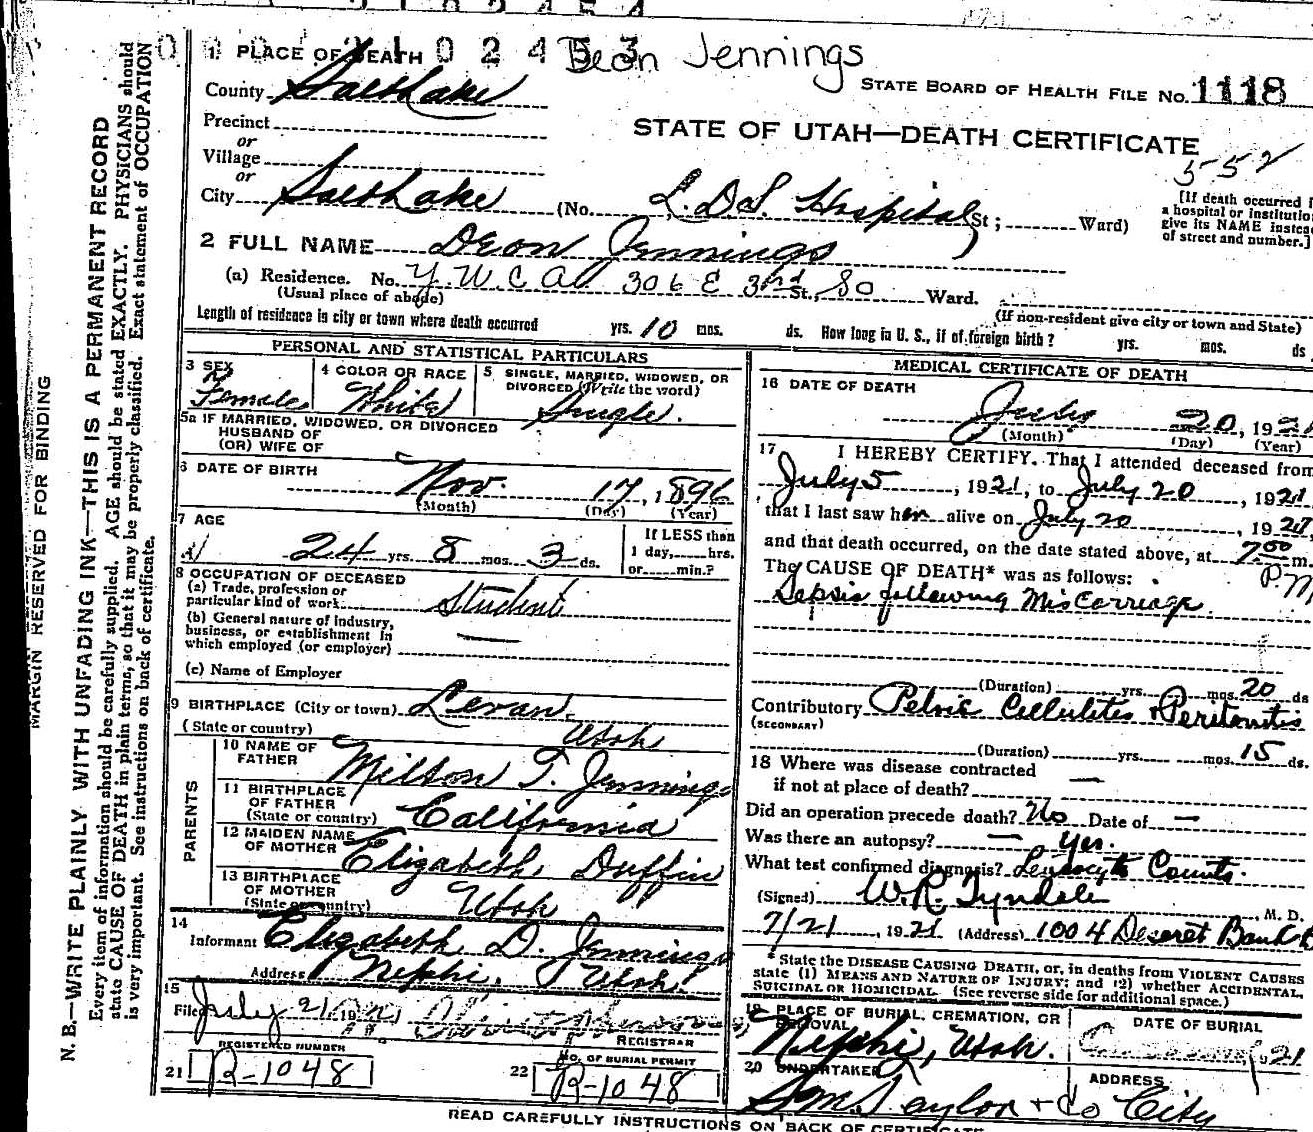 0 2 4 5 3 Deon Jennings
1 PLACE OF DEATH
STATE BOARD OF HEALTH FILE No. 1118
County Salt Lake
STATE OF UTAH—DEATH CERTIFICATE
Precinct
or
Village
552
or
City Salt Lake (No. L.D.S. Hospital St; Ward)
[If death occurred
a hospital or institutio
give its NAME instea
of street and number.]
2 FULL NAME Deon Jennings
(a) Residence. No. Y.W.C.A. 306 E 3rd St., So Ward.
(Usual place of abode)
(If non-resident give city or town and State)
Length of residence in city or town where death occurred yrs. 10 mos. ds. How long in U. S., if of foreign birth? yrs. mos. ds
PERSONAL AND STATISTICAL PARTICULARS
3 SEX
Female
4 COLOR OR RACE
White
5 SINGLE, MARRIED, WIDOWED, OR
DIVORCED (Write the word)
Single.
5a IF MARRIED, WIDOWED, OR DIVORCED
HUSBAND OF
(OR) WIFE OF
6 DATE OF BIRTH
Nov. 17, 1896
(Month) (Day) (Year)
7 AGE
24 yrs. 8 mos. 3 ds.
If LESS than
1 day, hrs.
or min.?
8 OCCUPATION OF DECEASED
(a) Trade, profession or
particular kind of work Student
(b) General nature of industry,
business, or establishment in
which employed (or employer)
(c) Name of Employer
9 BIRTHPLACE (City or town) Levan,
(State or country) Utah
PARENTS
10 NAME OF
FATHER Milton T. Jennings
11 BIRTHPLACE
OF FATHER
(State or country) California
12 MAIDEN NAME
OF MOTHER Elizabeth Duffin
13 BIRTHPLACE
OF MOTHER
(State or country) Utah
14
Informant Elizabeth D. Jennings
Address Nephi, Utah.
15
Filed July 21, 1921
REGISTRAR
REGISTERED NUMBER
21 R-1048
No. OF BURIAL PERMIT
22 R-1048
MEDICAL CERTIFICATE OF DEATH
16 DATE OF DEATH
July 20, 192
(Month) (Day) (Year)
17 I HEREBY CERTIFY. That I attended deceased from
July 5, 1921, to July 20, 1921
that I last saw her alive on July 20, 1921,
and that death occurred, on the date stated above, at 7 00 m.
P.M
The CAUSE OF DEATH* was as follows:
Sepsis following Miscarriage
(Duration) yrs. mos. 20 ds
Contributory Pelvic Cellulitis & Peritonitis
(SECONDARY)
(Duration) yrs. mos. 15 ds.
18 Where was disease contracted
if not at place of death? —
Did an operation precede death? No Date of —
Was there an autopsy? — Yes.
What test confirmed diagnosis? Leucocyte Counts.
(Signed) W.R. Tyndale, M. D.
7/21, 1921 (Address) 1004 Deseret Bank B
* State the DISEASE CAUSING DEATH, or, in deaths from VIOLENT CAUSES
state (1) MEANS AND NATURE OF INJURY; and (2) whether ACCIDENTAL,
SUICIDAL OR HOMICIDAL. (See reverse side for additional space.)
19 PLACE OF BURIAL, CREMATION, OR
REMOVAL
Nephi, Utah.
DATE OF BURIAL
21
20 UNDERTAKER
ADDRESS
S.M. Taylor & Co City
READ CAREFULLY INSTRUCTIONS ON BACK OF CERTIFICATE
MARGIN RESERVED FOR BINDING
N. B.—WRITE PLAINLY WITH UNFADING INK—THIS IS A PERMANENT RECORD
Every item of information should be carefully supplied. AGE should be stated EXACTLY. PHYSICIANS should
state CAUSE OF DEATH in plain terms, so that it may be properly classified. Exact statement of OCCUPATION
is very important. See instructions on back of certificate.